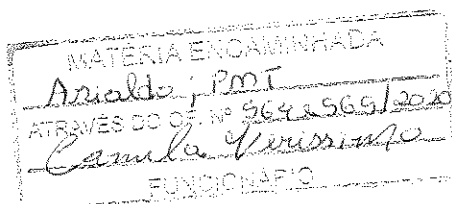 MATÉRIA ENCAMINHADA
Arialdo; PMT
ATRAVÉS DO OF. Nº 564 e 565/2020
Camila Verissimo
FUNCIONÁRIO